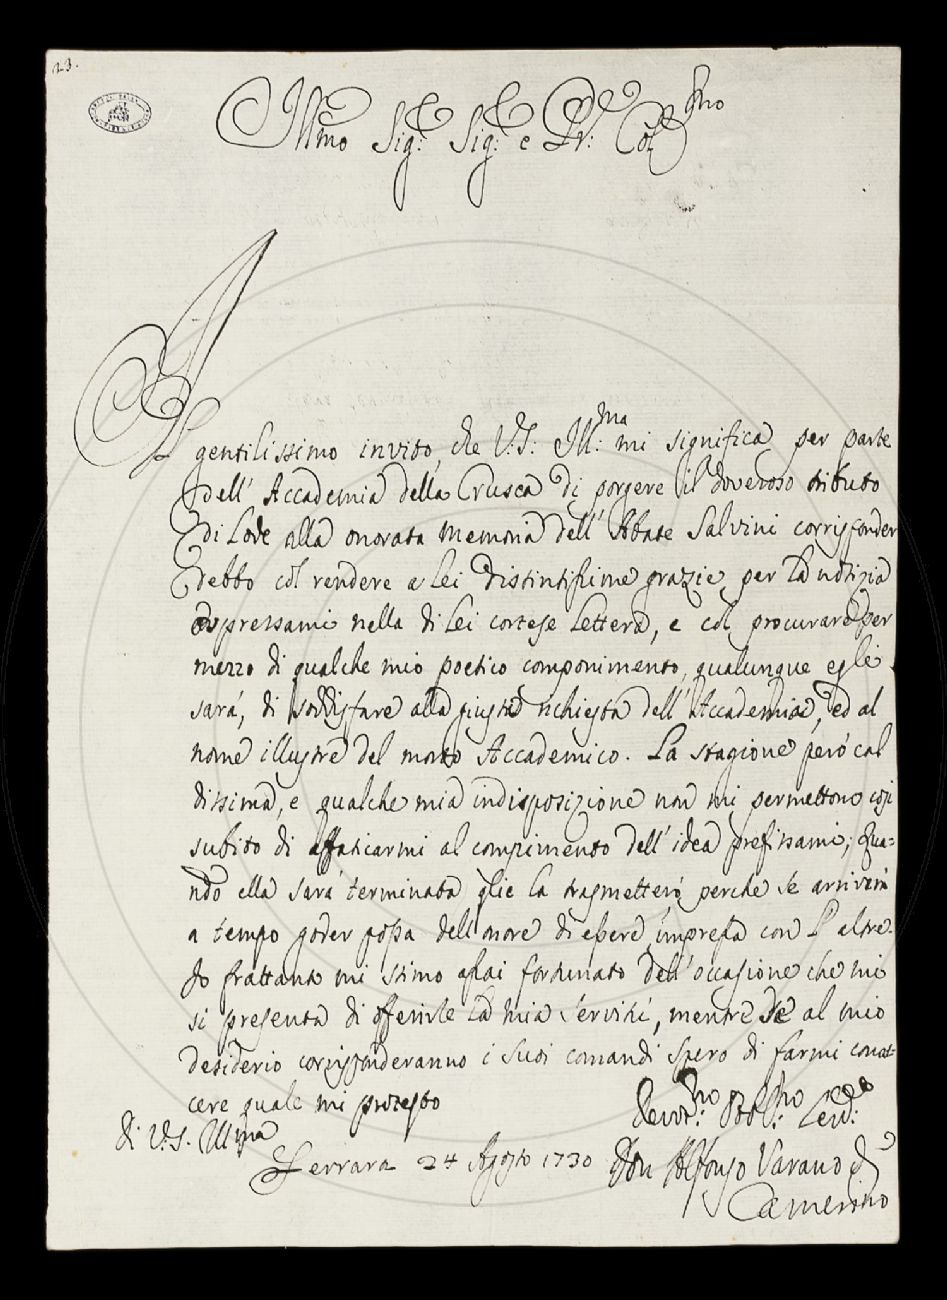 23.
Illmo Sig: Sig: e Pr: Col:mo
Al gentilissimo invito, che V.S: Ill:ma mi significa per parte
dell' Accademia della Crusca di porgere il doveroso tributo
di Lode alla onorata memoria dell' Abate Salvini corrisponder
debbo col rendere a Lei distintissime grazie per la notizia
espressami nella di Lei cortese Lettera, e col procurare per
mezzo di qualche mio poetico componimento, qualunque egli
sará, di soddisfare alla giusta richiesta dell' Accademia, ed al
nome illustre del morto Accademico. La stagione peró cal
dissima, e qualche mia indisposizione non mi permettono cosi
subito di affaticarmi al compimento dell' idea prefissami; Qua=
ndo ella sará terminata glie la trasmetteró perche se arriverá
a tempo goder possa dell' onore di essere impressa con l' altre.
Io frattanto mi stimo assai fortunato dell' occasione che mi
si presenta di offerirle la mia servitú, mentre se al mio
desiderio corrisponderanno i suoi comandi spero di farmi conos=
cere quale mi protesto
Di V.S. Illma
Devot:mo Obbl:mo Serv:re
Ferrara 24 Agosto 1730
Don Alfonso Varano di
Camerino